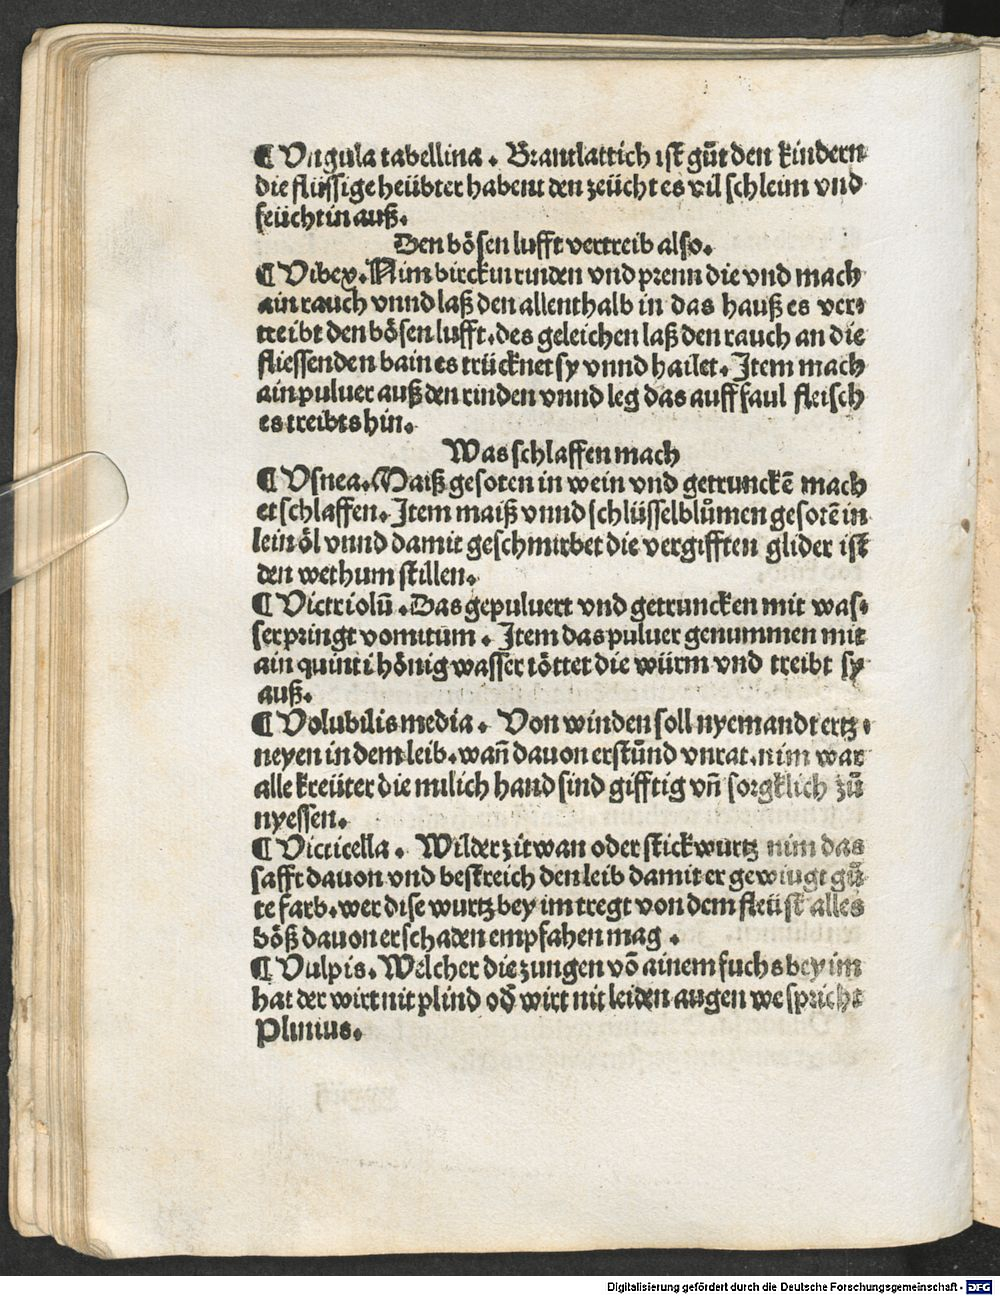 ¶ Vngula tabellina. Brantlattich ist gůt den kindern
die flüssige heübter habent den zeücht es vil schleim vnd
feüchtin auß.
Den bösen lufft vertreib also.
¶ Vibex. Nim birckin rinden vnd prenn die vnd mach
ain rauch vnnd laß den allenthalb in das hauß es ver⸗
treibt den bösen lufft. des geleichen laß den rauch an die
fliessenden bain es trücknet sy vnnd hailet. Item mach
ain puluer auß den rinden vnnd leg das auff faul fleisch
es treibts hin.
Was schlaffen mach
¶ Vsnea. Maiß gesoten in wein vnd getrunckē mach
et schlaffen. Item maiß vnnd schlüsselblůmen gesotē in
lein öl vnnd damit geschmirbet die vergifften glider ist
den wethum stillen.
¶ Victriolū. Das gepuluert vnd getruncken mit was⸗
ser pringt vomitum. Item das puluer genummen mit
ain quinti hönig wasser töttet die würm vnd treibt sy
auß.
¶ Volubilis media. Von winden soll nyemandt ertz⸗
neyen in dem leib. wañ dauon erstůnd vnrat. nim war
alle kreüter die milich hand sind gifftig vñ sorgklich zů
nyessen.
¶ Victicella. Wilder zitwan oder stickwurtz nim das
safft dauon vnd bestreich den leib damit er gewingt gů
te farb. wer dise wurtz bey im tregt von dem fleüst alles
böß dauon er schaden empfahen mag.
¶ Vulpis. Welcher die zungen vō ainem fuchs bey im
hat der wirt nit plind oď wirt nit leiden augen we spricht
Plinius.
Digitalisierung gefördert durch die Deutsche Forschungsgemeinschaft - DFG